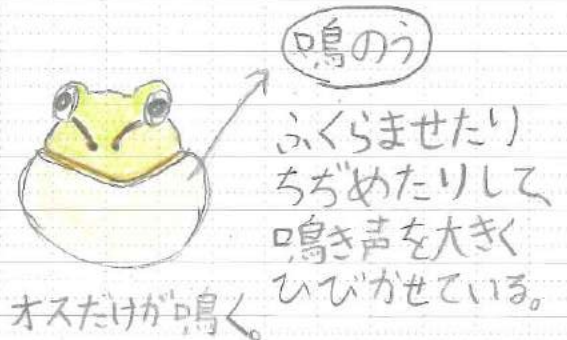 鳴のう
ふくらませたり
ちぢめたりして、
鳴き声を大きく
ひびかせている。
オスだけが鳴く。